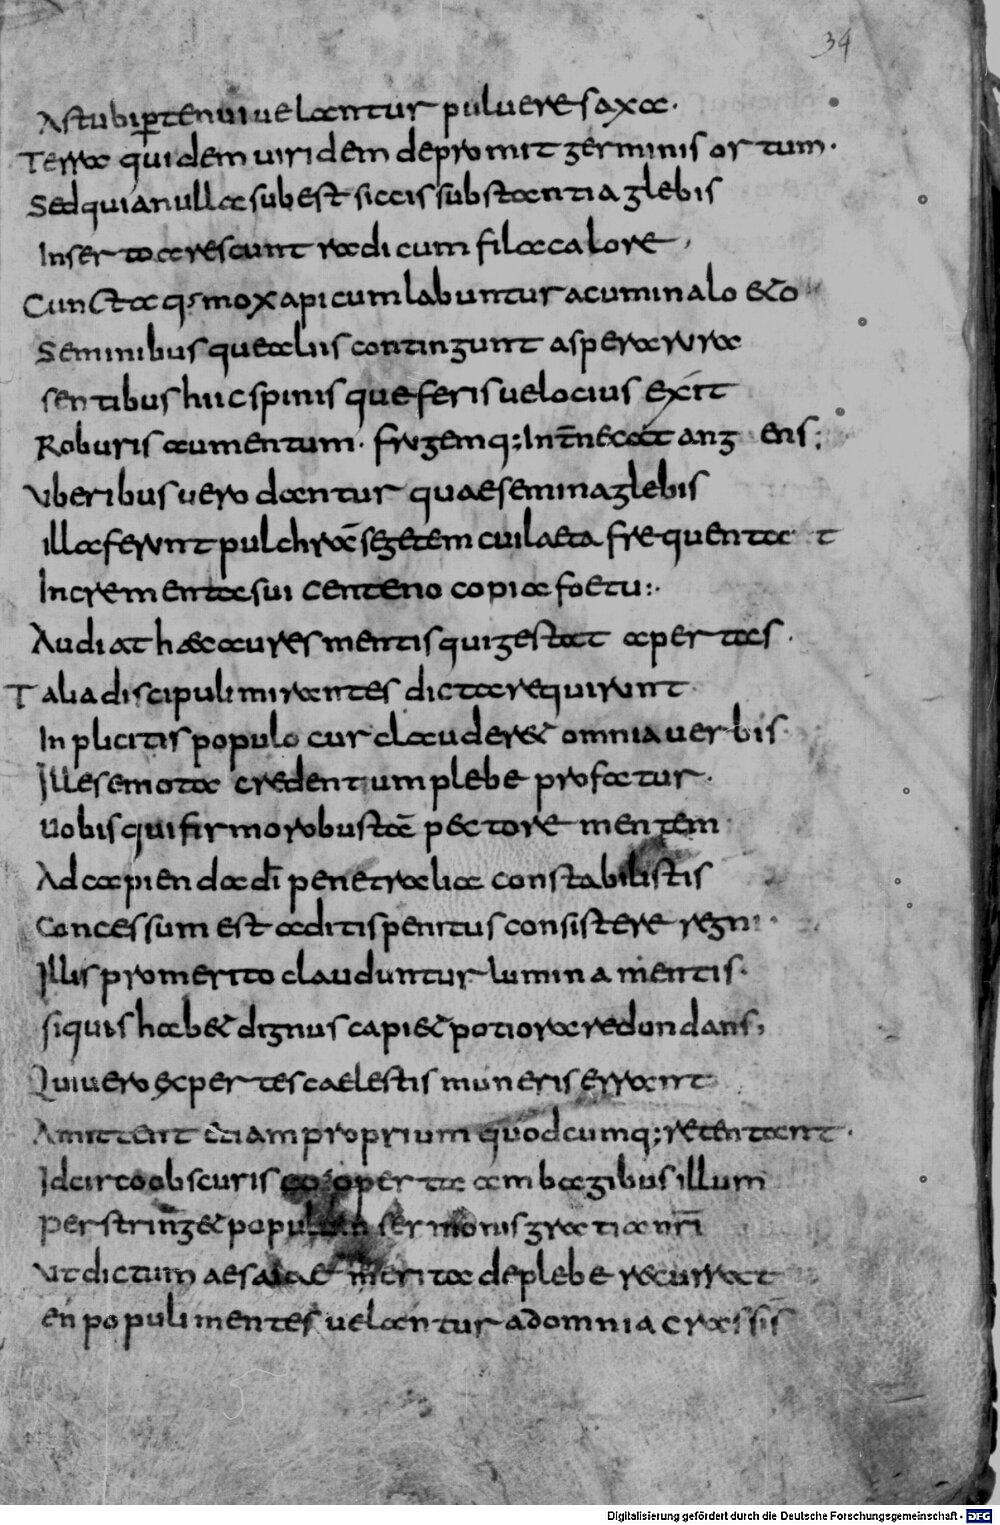 34
Ast ubi ꝑtenui uelantur puluere saxa.
Terra quidem uiridem depromit germinis ortum.
Sed quia nulla subest siccis substantia glebis
Inserto arescunt radicum fila calore,
Cuncta q; mox apicum labuntur acumina lo&o
Seminibus que aliis contingunt aspera rura
sentibus hiic spinis que feris uelocius exit
Roburis aumentum. frugemq; Int̄ necat angens;
Vberibus uero dantur quae semina glebis
illa ferunt pulchrā segetem cui laeta frequentat
Incrementa sui centeno copia foetu:.
Audiat haec aures mentis qui gestat apertas.
Talia discipuli mirantes dicta requirunt
Inplicitis populo cur clauder& omnia uerbis.
Ille semota credentum plebe profatur.
Uobis qui firmo robustā pectore mentem
Ad capienda dī penetralia constabilistis
Concessum est aditis penitus consistere regni.
Illis pro merito clauduntur lumina mentis.
siquis hab& dignus capi& potiora redundans,
Qui uero expertes caelestis muneris errant
Amittent &iam proprium quodcumq; retentant.
Idcirco obscuris cooperta ambagibus illum
Perstring& populum sermonis gratia nrī
Vt dictum aesaiae merita de plebe recurrat
en populi mentes uelantur ad omnia crassis
Digitalisierung gefördert durch die Deutsche Forschungsgemeinschaft - DFG